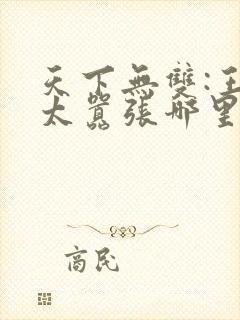 天下無雙:王
太囂張哪里
商民